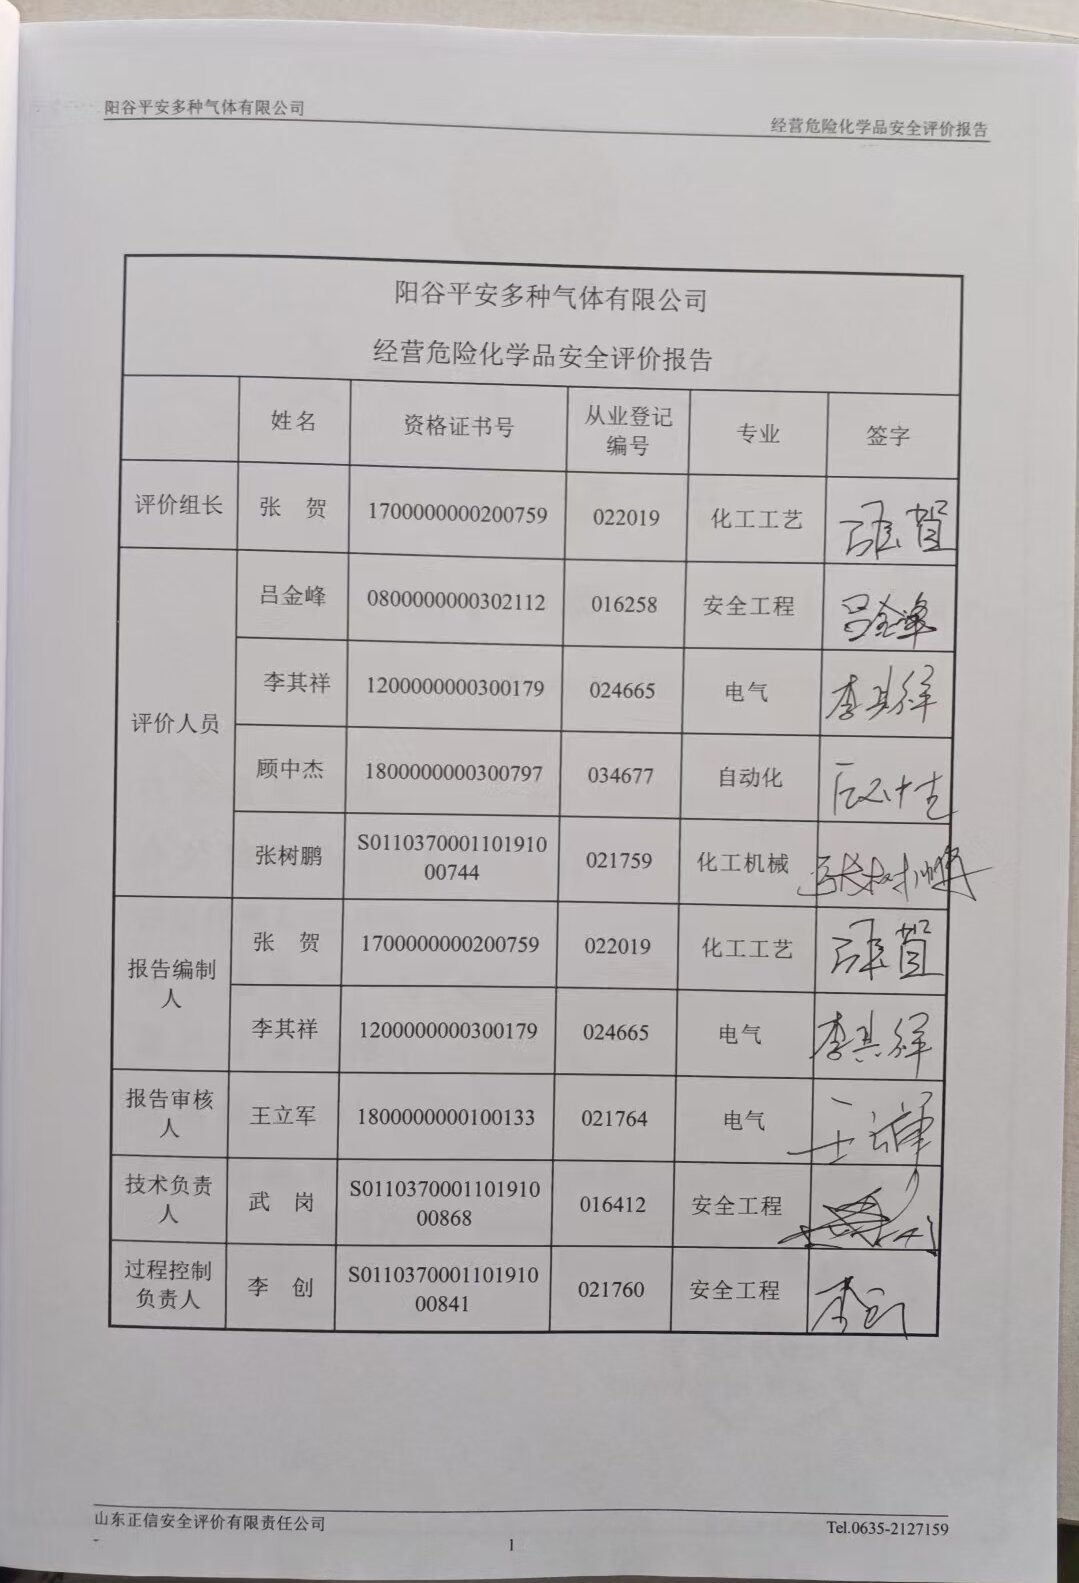 阳谷平安多种气体有限公司
经营危险化学品安全评价报告
阳谷平安多种气体有限公司
经营危险化学品安全评价报告
姓名 资格证书号 从业登记编号 专业 签字
评价组长 张 贺 1700000000200759 022019 化工工艺 张贺
评价人员 吕金峰 0800000000302112 016258 安全工程 吕金峰
李其祥 1200000000300179 024665 电气 李其祥
顾中杰 1800000000300797 034677 自动化 顾中杰
张树鹏 S011037000110191000744 021759 化工机械 张树鹏
报告编制人 张 贺 1700000000200759 022019 化工工艺 张贺
李其祥 1200000000300179 024665 电气 李其祥
报告审核人 王立军 1800000000100133 021764 电气 王立军
技术负责人 武 岗 S011037000110191000868 016412 安全工程
过程控制负责人 李 创 S011037000110191000841 021760 安全工程 李创
山东正信安全评价有限责任公司
Tel.0635-2127159
1